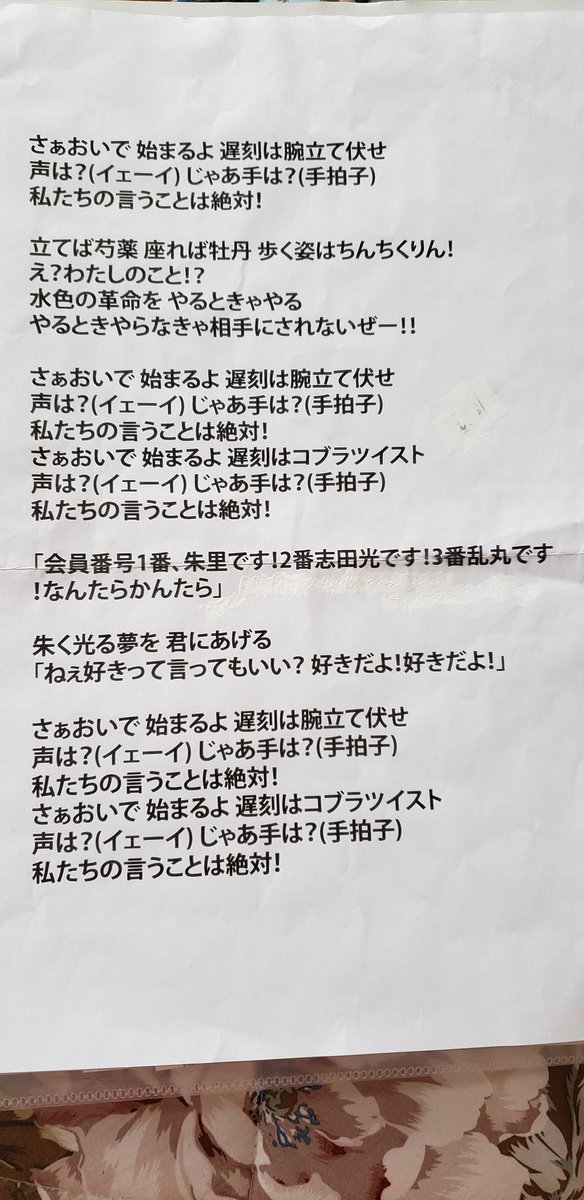 さぁおいで 始まるよ 遅刻は腕立て伏せ
声は?(イェーイ) じゃあ手は?(手拍子)
私たちの言うことは絶対!
立てば芍薬 座れば牡丹 歩く姿はちんちくりん!
え?わたしのこと!?
水色の革命を やるときゃやる
やるときやらなきゃ相手にされないぜー!!
さぁおいで 始まるよ 遅刻は腕立て伏せ
声は?(イェーイ) じゃあ手は?(手拍子)
私たちの言うことは絶対!
さぁおいで 始まるよ 遅刻はコブラツイスト
声は?(イェーイ) じゃあ手は?(手拍子)
私たちの言うことは絶対!
「会員番号1番、朱里です!2番志田光です!3番乱丸です
!なんたらかんたら」
朱く光る夢を 君にあげる
「ねぇ好きって言ってもいい? 好きだよ!好きだよ!」
さぁおいで 始まるよ 遅刻は腕立て伏せ
声は?(イェーイ) じゃあ手は?(手拍子)
私たちの言うことは絶対!
さぁおいで 始まるよ 遅刻はコブラツイスト
声は?(イェーイ) じゃあ手は?(手拍子)
私たちの言うことは絶対!